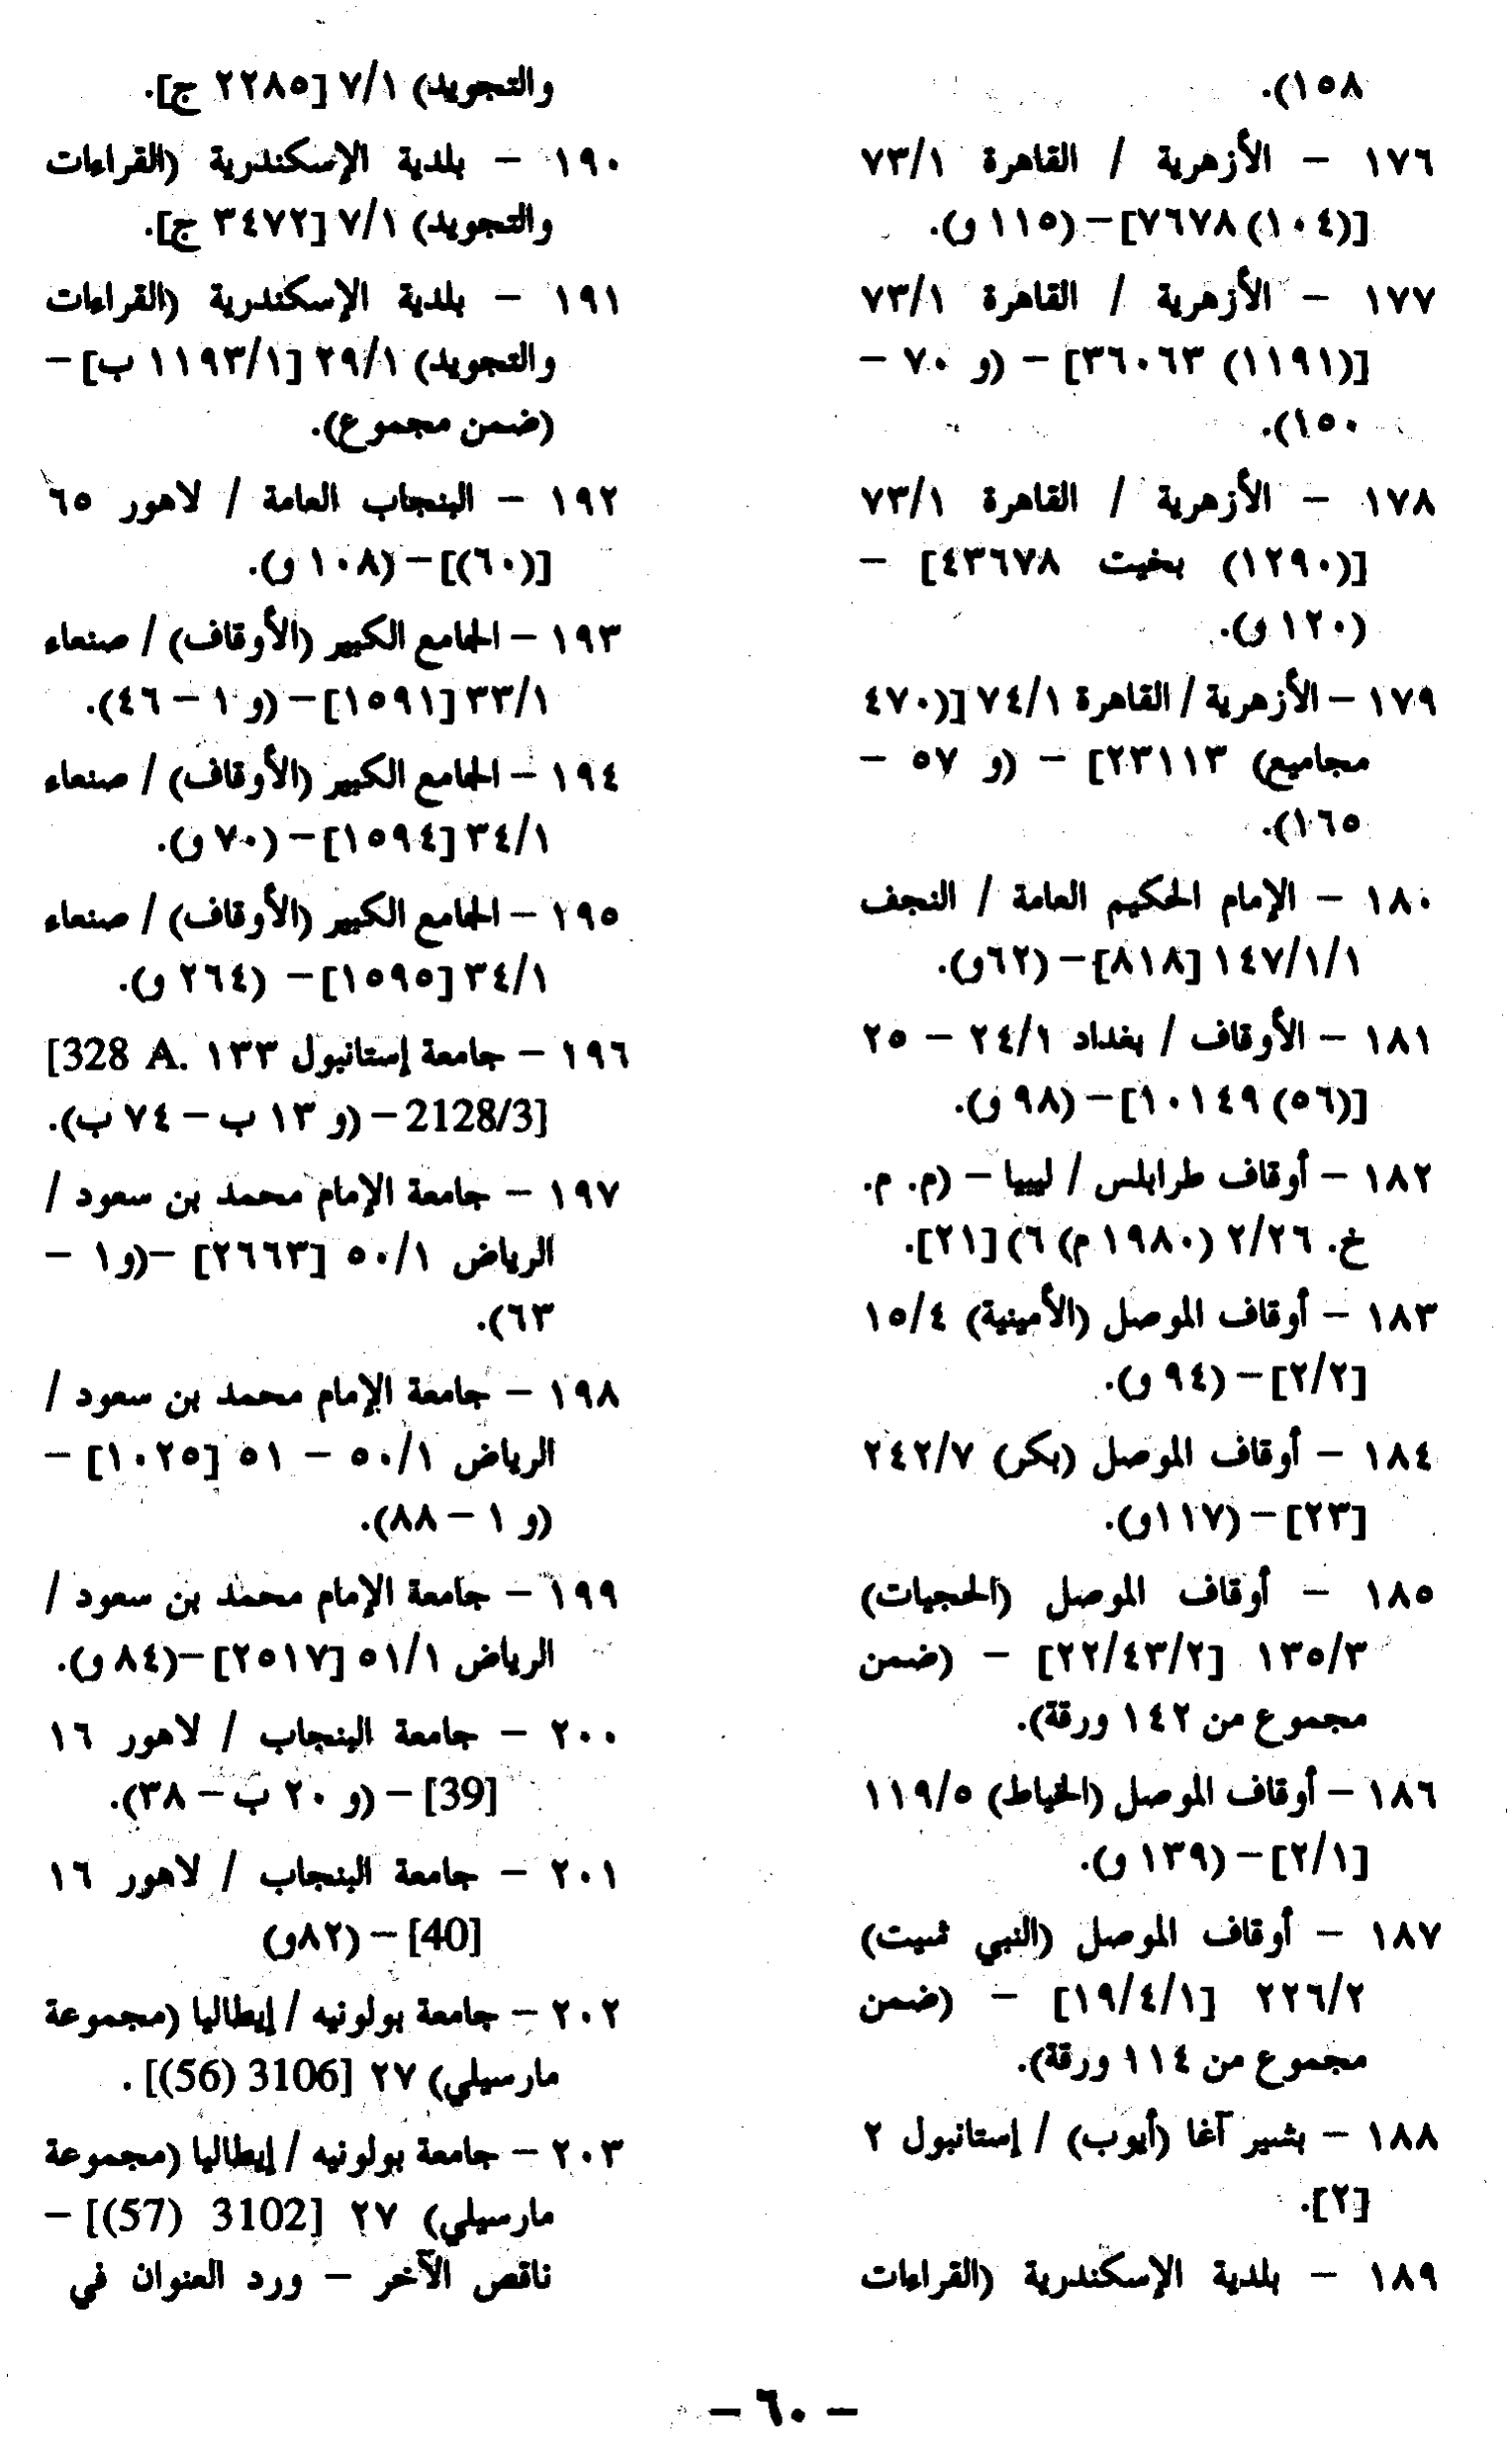 ١٥٨).
١٧٦ – الأزهرية / القاهرة ٧٣/١
[(١٠٤) ٧٦٧٨] – (١١٥ و).
١٧٧ – الأزهرية / القاهرة ٧٣/١
[(١١٩١) ٣٦٠٦٣] – (و ٧٠ –
١٥٠).
١٧٨ – الأزهرية / القاهرة ٧٣/١
[(١٢٩٠) بخيت ٤٣٦٧٨] –
(١٢٠ و).
١٧٩ – الأزهرية / القاهرة ٧٤/١ [(٤٧٠
مجاميع) ٢٣١١٣] – (و ٥٧ –
١٦٥).
١٨٠ – الإمام الحكيم العامة / النجف
١٤٧/١/١ [٨١٨] – (٦٢و).
١٨١ – الأوقاف / بغداد ٢٤/١ – ٢٥
[(٥٦) ١٠١٤٩] – (٩٨ و).
١٨٢ – أوقاف طرابلس / ليبيا – (م. م.
خ. ٢/٢٦ (١٩٨٠ م) ٦) [٢١].
١٨٣ – أوقاف الموصل (الأمينية) ١٥/٤
[٢/٢] – (٩٤ و).
١٨٤ – أوقاف الموصل (بكر) ٢٤٢/٧
[٢٣] – (١١٧و).
١٨٥ – أوقاف الموصل (الحجيات)
١٣٥/٣ [٢٢/٤٣/٢] – (ضمن
مجموع من ١٤٢ ورقة).
١٨٦ – أوقاف الموصل (الخياط) ١١٩/٥
[٢/١] – (١٣٩ و).
١٨٧ – أوقاف الموصل (النبي ثميت)
٢٢٦/٢ [١٩/٤/١] – (ضمن
مجموع من ١١٤ ورقة).
١٨٨ – بشير آغا (أيوب) / إستانبول ٢
[٢].
١٨٩ – بلدية الإسكندرية (القراءات
والتجويد) ٧/١ [٢٢٨٥ ج].
١٩٠ – بلدية الإسكندرية (القراءات
والتجويد) ٧/١ [٣٤٧٢ ج].
١٩١ – بلدية الإسكندرية (القراءات
والتجويد) ٢٩/١ [١١٩٣/١ ب] –
(ضمن مجموع).
١٩٢ – البنجاب العامة / لاهور ٦٥
[(٦٠)] – (١٠٨ و).
١٩٣ – الجامع الكبير (الأوقاف) / صنعاء
٣٣/١ [١٥٩١] – (و ١ – ٤٦).
١٩٤ – الجامع الكبير (الأوقاف) / صنعاء
٣٤/١ [١٥٩٤] – (٧٠ و).
١٩٥ – الجامع الكبير (الأوقاف) / صنعاء
٣٤/١ [١٥٩٥] – (٢٦٤ و).
١٩٦ – جامعة إستانبول ١٣٣ [328 A.
2128/3] – (و ١٣ ب – ٧٤ ب).
١٩٧ – جامعة الإمام محمد بن سعود /
الرياض ٥٠/١ [٢٦٦٣] – (و١ –
٦٣).
١٩٨ – جامعة الإمام محمد بن سعود /
الرياض ٥٠/١ – ٥١ [١٠٢٥] –
(و ١ – ٨٨).
١٩٩ – جامعة الإمام محمد بن سعود /
الرياض ٥١/١ [٢٥١٧] – (٨٤ و).
٢٠٠ – جامعة البنجاب / لاهور ١٦
[39] – (و ٢٠ ب – ٣٨).
٢٠١ – جامعة البنجاب / لاهور ١٦
[40] – (٨٢و)
٢٠٢ – جامعة بولونيه / إيطاليا (مجموعة
مارسيلي) ٢٧ [3106 (56)] .
٢٠٣ – جامعة بولونيه / إيطاليا (مجموعة
مارسيلي) ٢٧ [3102 (57)] –
ناقص الآخر – ورد العنوان في
– ٦٠ –